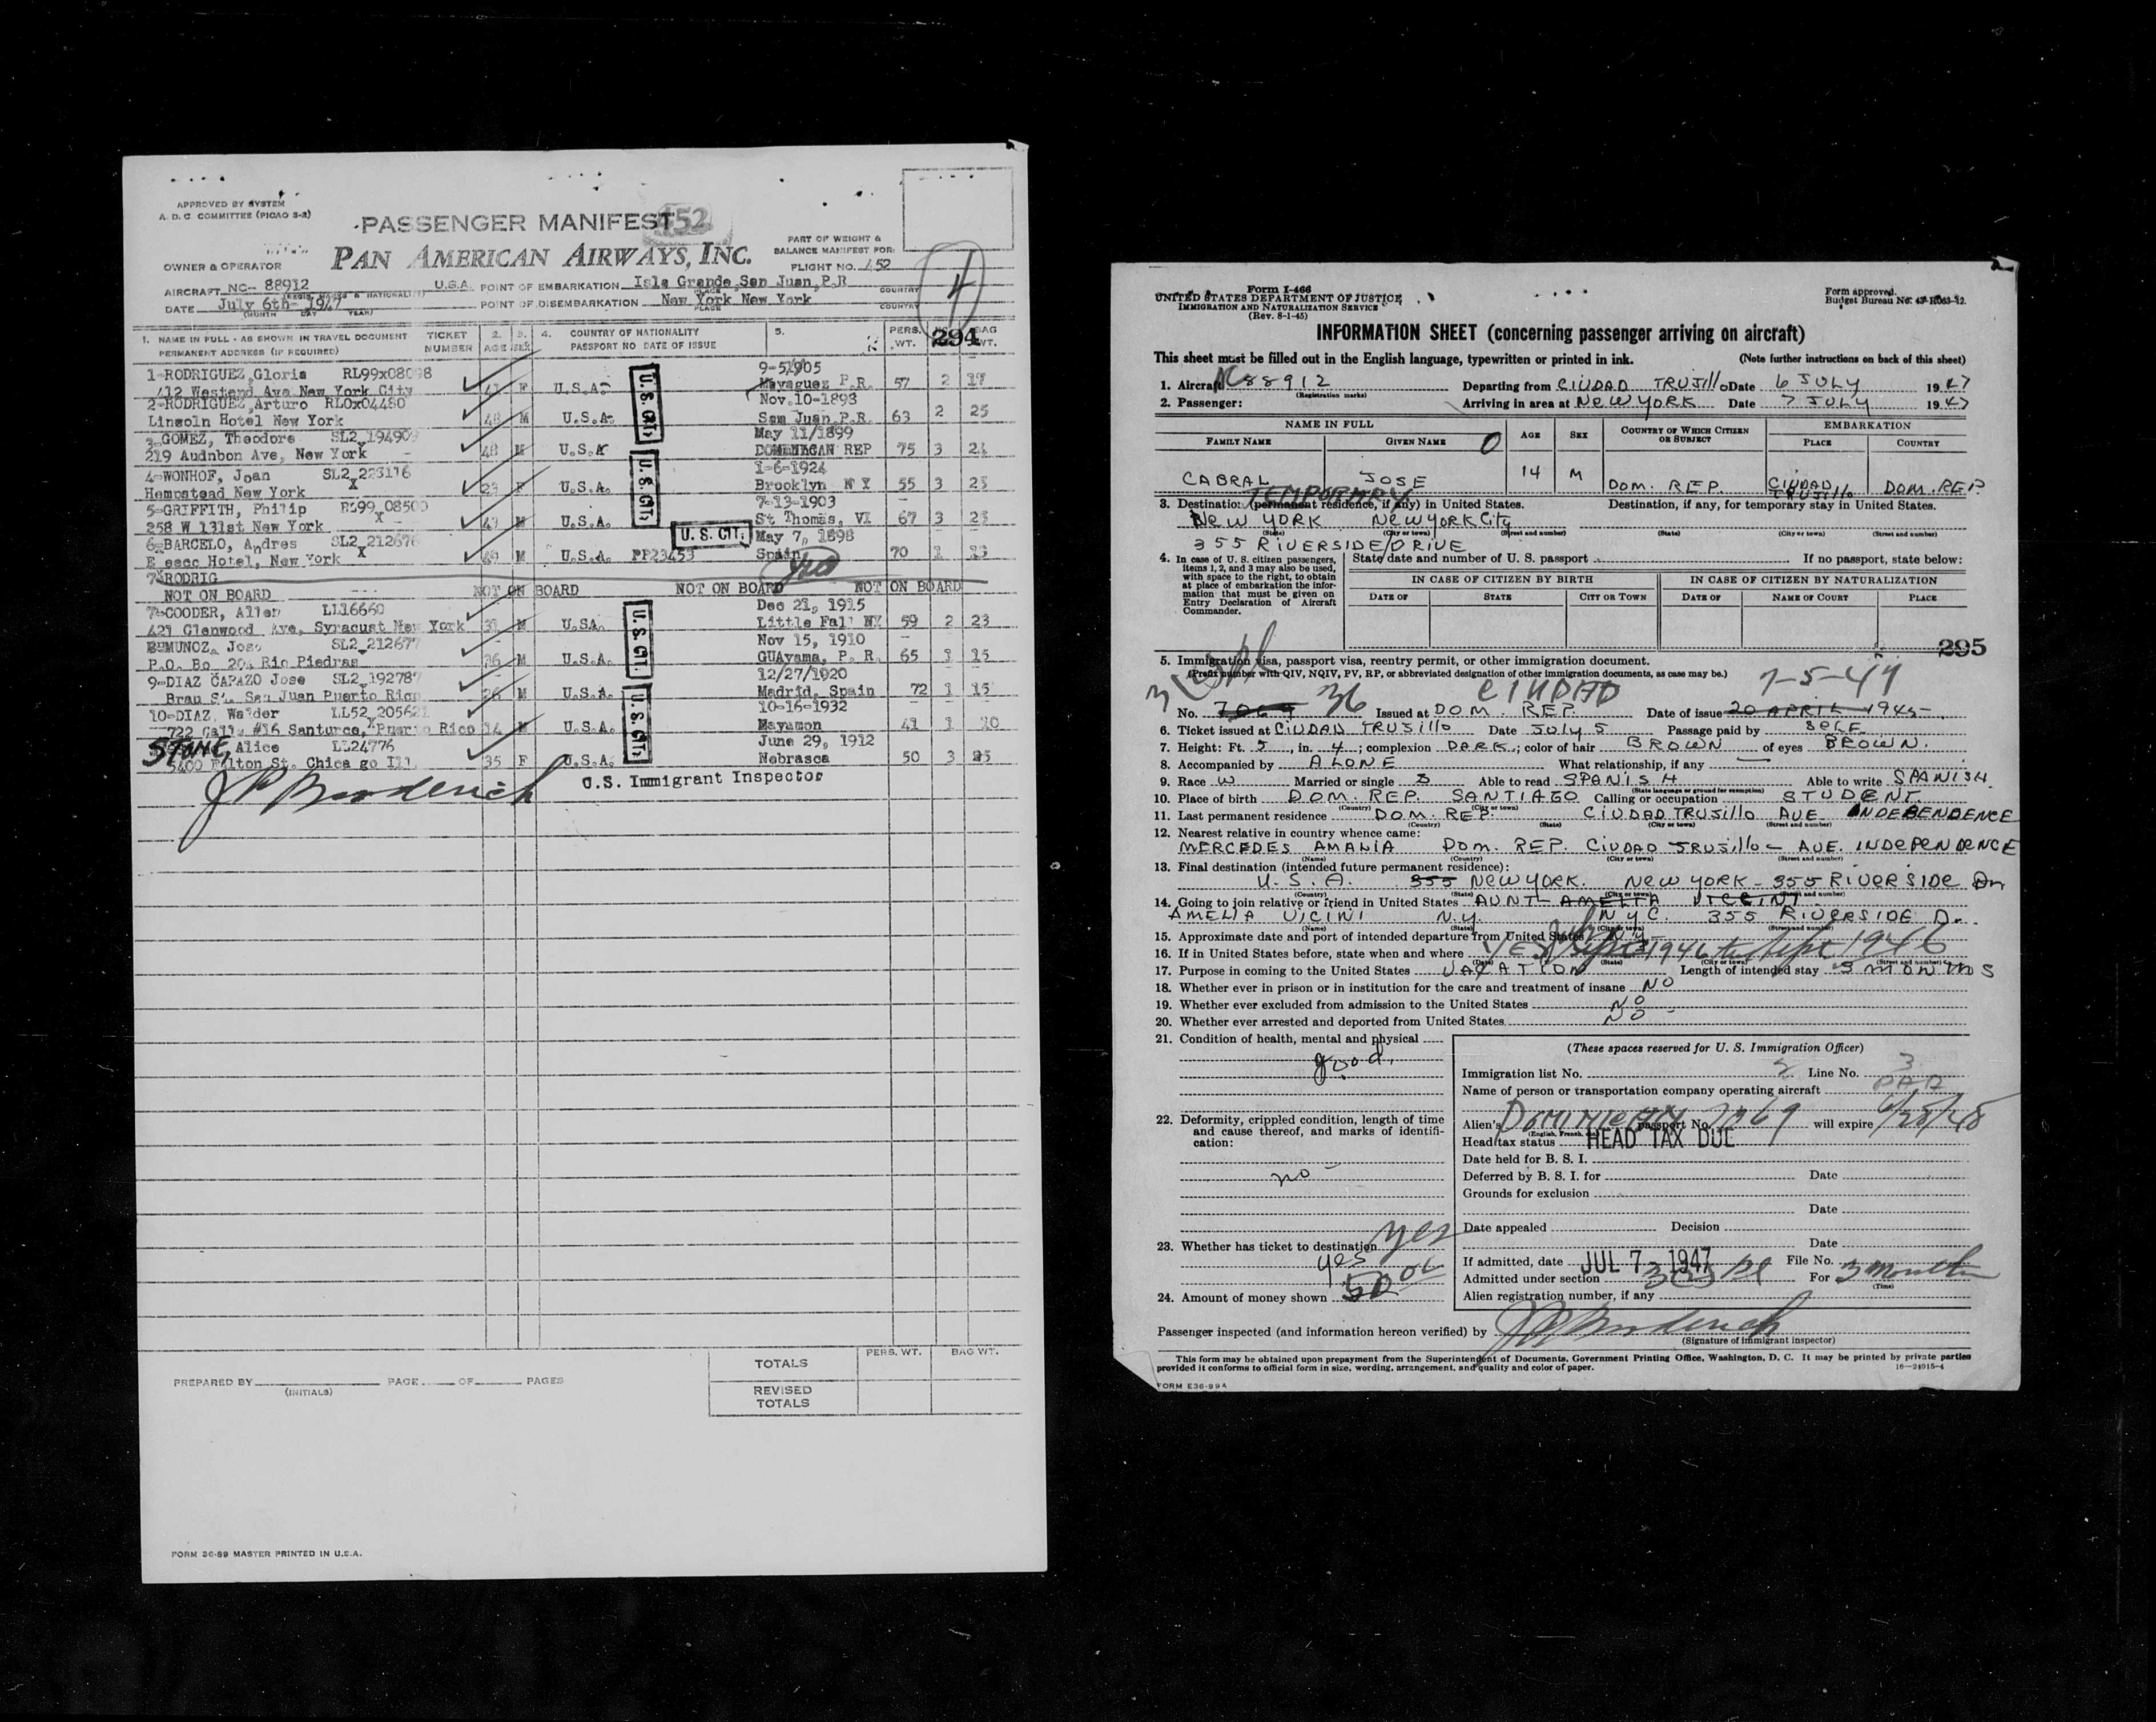 APPROVED BY SYSTEM
A. D. C. COMMITTEE (PICAO S-2)
PASSENGER MANIFEST 452
PAN AMERICAN AIRWAYS, INC.
PART OF WEIGHT &
BALANCE MANIFEST FOR:
OWNER & OPERATOR
FLIGHT NO. 452
4
AIRCRAFT NC- 88912 U.S.A. POINT OF EMBARKATION Isla Grande, San Juan, P.R COUNTRY
DATE July 6th- 1947 POINT OF DISEMBARKATION New York New York COUNTRY
(MONTH DAY YEAR) PLACE
294
1. NAME IN FULL - AS SHOWN IN TRAVEL DOCUMENT TICKET 2. 3. 4. COUNTRY OF NATIONALITY 5. PERS. BAG
PERMANENT ADDRESS (IF REQUIRED) NUMBER AGE SEX PASSPORT NO DATE OF ISSUE WT. WT.
1-RODRIGUEZ, Gloria RL99x08098 9-5/1905
412 Westend Ave New York City 41 F U.S.A. Mayaguez P.R. 57 2 17
2-RODRIGUEZ, Arturo RLOx04480 Nov.10-1898
Lincoln Hotel New York 48 M U.S.A. San Juan.P.R. 63 2 25
3-GOMEZ, Theodore SL2 194909 May 11/1899
219 Audnbon Ave, New York 48 M U.S.A DOMINACAN REP 75 3 24
4-WONHOF, Joan SL2 223116 1-6-1924
Hempstead New York X 23 F U.S.A. Brooklyn N Y 55 3 25
5-GRIFFITH, Philip RL99 08500 7-13-1903
258 W 131st New York X 43 M U.S.A. St Thomas, VI 67 3 25
6-BARCELO, Andres SL2 212676 U. S. CIT. May 7, 1898
E secc Hotel, New York X 49 M U.S.A. PP23453 Spain 70 1
7-RODRIG
NOT ON BOARD NOT ON BOARD NOT ON BOARD NOT ON BOARD
7-GOODER, Allen LL16660 Dec 21, 1915
421 Glenwood Ave, Syracust New York 31 M U.SA. Little Fall NY 59 2 23
8-MUNOZ, Jose SL2 212677 Nov 15, 1910
P.O. Bo 204 Rio Piedras 36 M U.S.A. GUAyama, P. R. 65 1 15
9-DIAZ CAPAZO Jose SL2 192787 12/27/1920
Brau St. San Juan Puerto Rico 26 M U.S.A. Madrid, Spain 72 1 15
10-DIAZ, Walder LL52 205621 10-16-1932
722 Calle #16 Santurce, Puerto Rico 14 M U.S.A. Mayamon 41 1 10
STAHL, Alice LL24776 June 29, 1912
5400 Fulton St. Chica go Ill. 35 F U.S.A. Nebrasca 50 3 25
U. S. CIT.
U. S. CIT.
U. S. CIT.
U. S. CIT.
J P Broderick U.S. Immigrant Inspector
TOTALS PERS. WT. BAG WT.
PREPARED BY PAGE OF PAGES
(INITIALS)
REVISED
TOTALS
FORM 36-99 MASTER PRINTED IN U.S.A.
Form I-466
UNITED STATES DEPARTMENT OF JUSTICE
IMMIGRATION AND NATURALIZATION SERVICE
(Rev. 8-1-45)
Form approved.
Budget Bureau No. 43-R063-42.
INFORMATION SHEET (concerning passenger arriving on aircraft)
This sheet must be filled out in the English language, typewritten or printed in ink. (Note further instructions on back of this sheet)
1. Aircraft NC88912 Departing from CIUDAD TRUJILLO Date 6 JULY 1947
(Registration marks)
2. Passenger: Arriving in area at NEW YORK Date 7 JULY 1947
NAME IN FULL AGE SEX COUNTRY OF WHICH CITIZEN OR SUBJECT EMBARKATION
FAMILY NAME GIVEN NAME PLACE COUNTRY
CABRAL JOSE 14 M DOM. REP. CIUDAD TRUJILLO DOM. REP
TEMPORARY
3. Destination: (permanent residence, if any) in United States. Destination, if any, for temporary stay in United States.
NEW YORK NEW YORK City
(State) (City or town) (Street and number) (State) (City or town) (Street and number)
355 RIVERSIDE DRIVE
4. In case of U. S. citizen passengers, items 1, 2, and 3 may also be used, with space to the right, to obtain at place of embarkation the information that must be given on Entry Declaration of Aircraft Commander.
State date and number of U. S. passport If no passport, state below:
IN CASE OF CITIZEN BY BIRTH IN CASE OF CITIZEN BY NATURALIZATION
DATE OF STATE CITY OR TOWN DATE OF NAME OF COURT PLACE
295
5. Immigration visa, passport visa, reentry permit, or other immigration document.
(Prefix number with QIV, NQIV, PV, RP, or abbreviated designation of other immigration documents, as case may be.)
36 CIUDAD 7-5-47
No. 7069 Issued at DOM. REP. Date of issue 20 APRIL 1945
6. Ticket issued at CIUDAD TRUJILLO Date JULY 5 Passage paid by SELF
7. Height: Ft. 5, in. 4; complexion DARK; color of hair BROWN of eyes BROWN.
8. Accompanied by ALONE What relationship, if any
9. Race W Married or single S Able to read SPANISH Able to write SPANISH
(State language or ground for exemption)
10. Place of birth DOM. REP. SANTIAGO Calling or occupation STUDENT
(Country) (City or town)
11. Last permanent residence DOM. REP. CIUDAD TRUJILLO AVE INDEBENDENCE
(Country) (State) (City or town) (Street and number)
12. Nearest relative in country whence came:
MERCEDES AMALIA DOM. REP. CIUDAD TRUJILLO - AVE. INDEPENDENCE
(Name) (Country) (City or town) (Street and number)
13. Final destination (intended future permanent residence):
U. S. A. 355 NEW YORK. NEW YORK - 355 RIVERSIDE Dr
(Country) (State) (City or town) (Street and number)
14. Going to join relative or friend in United States AUNT AMELIA VICCINI
AMELIA VICINI N.Y. NYC. 355 RIVERSIDE D.
(Name) (State) (City or town) (Street and number)
15. Approximate date and port of intended departure from United States N.Y.
16. If in United States before, state when and where YES 1946 to Sept 1946
(Date) (State) (City or town) (Street and number)
17. Purpose in coming to the United States VACATION Length of intended stay 3 MONTHS
18. Whether ever in prison or in institution for the care and treatment of insane NO
19. Whether ever excluded from admission to the United States NO
20. Whether ever arrested and deported from United States NO
21. Condition of health, mental and physical
good.
22. Deformity, crippled condition, length of time and cause thereof, and marks of identification:
no
23. Whether has ticket to destination yes
yes
24. Amount of money shown 50 00
(These spaces reserved for U. S. Immigration Officer)
Immigration list No. 2 Line No. 3
Name of person or transportation company operating aircraft PAA
Alien's DOMINICAN passport No. 7369 will expire 6/28/48
Head tax status HEAD TAX DUE
Date held for B. S. I.
Deferred by B. S. I. for Date
Grounds for exclusion
Date
Date appealed Decision
Date
If admitted, date JUL 7 1947 File No.
Admitted under section For 3 months
(Time)
Alien registration number, if any
Passenger inspected (and information hereon verified) by J P Broderick
(Signature of immigrant inspector)
This form may be obtained upon prepayment from the Superintendent of Documents, Government Printing Office, Washington, D. C. It may be printed by private parties
provided it conforms to official form in size, wording, arrangement, and quality and color of paper. 16-24915-4
FORM E36-99A